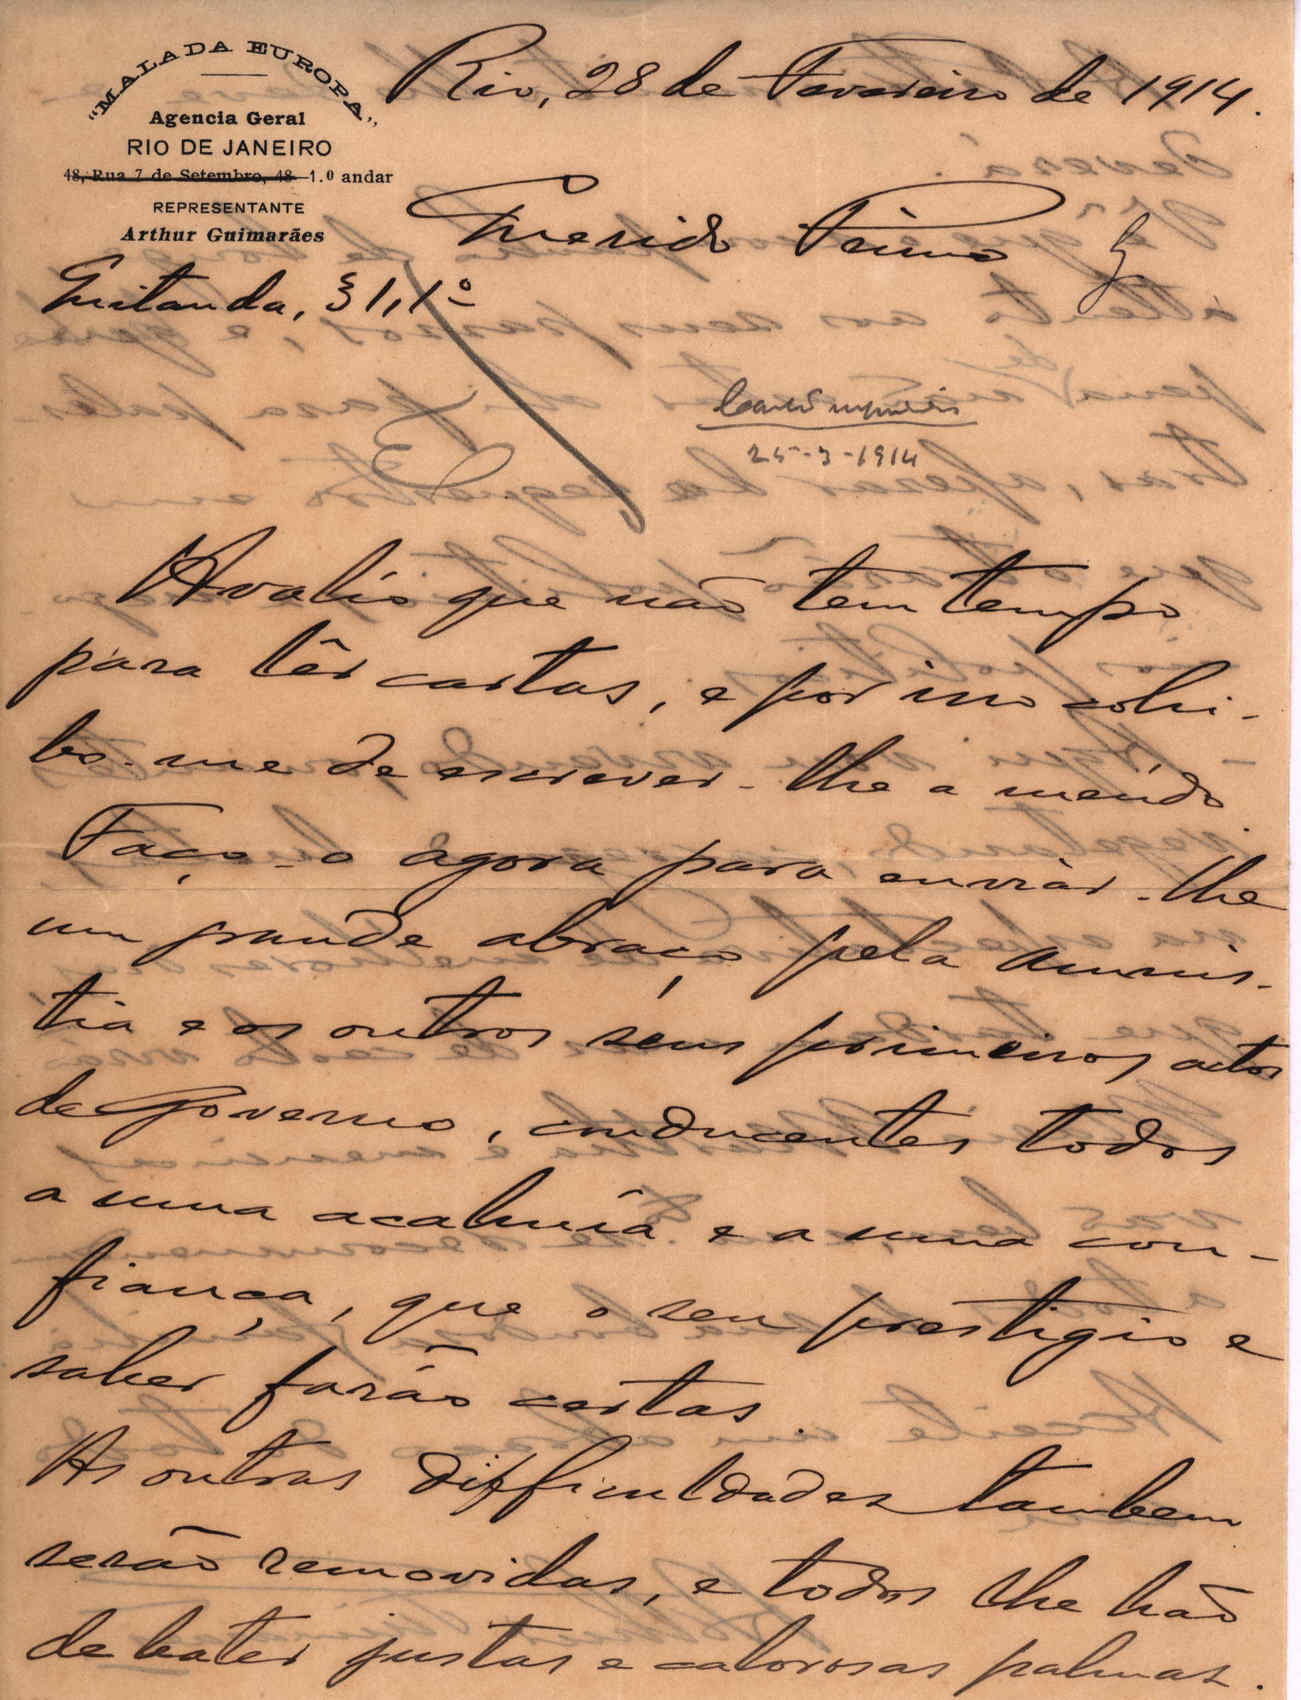 "MALA DA EUROPA",
Agencia Geral
RIO DE JANEIRO
48, Rua 7 de Setembro, 48 - 1.º andar
REPRESENTANTE
Arthur Guimarães
Quitanda, 31, 1º
Rio, 28 de Fevereiro de 1914.
Querido Primo
25-3-1914
Avalio que não tem tempo
para lêr cartas, e por isso cohi-
bo-me de escrever-lhe a meúdo.
Faço-o agora para enviar-lhe
um grande abraço pela amnis-
tia e os outros seus primeiros actos
de Governo, conducentes todos
a uma acalmia e a uma con-
fiança, que o seu prestigio e
saber farão certas.
As outras difficuldades tambem
serão removidas, e todos lhe hão
de bater justas e calorosas palmas.